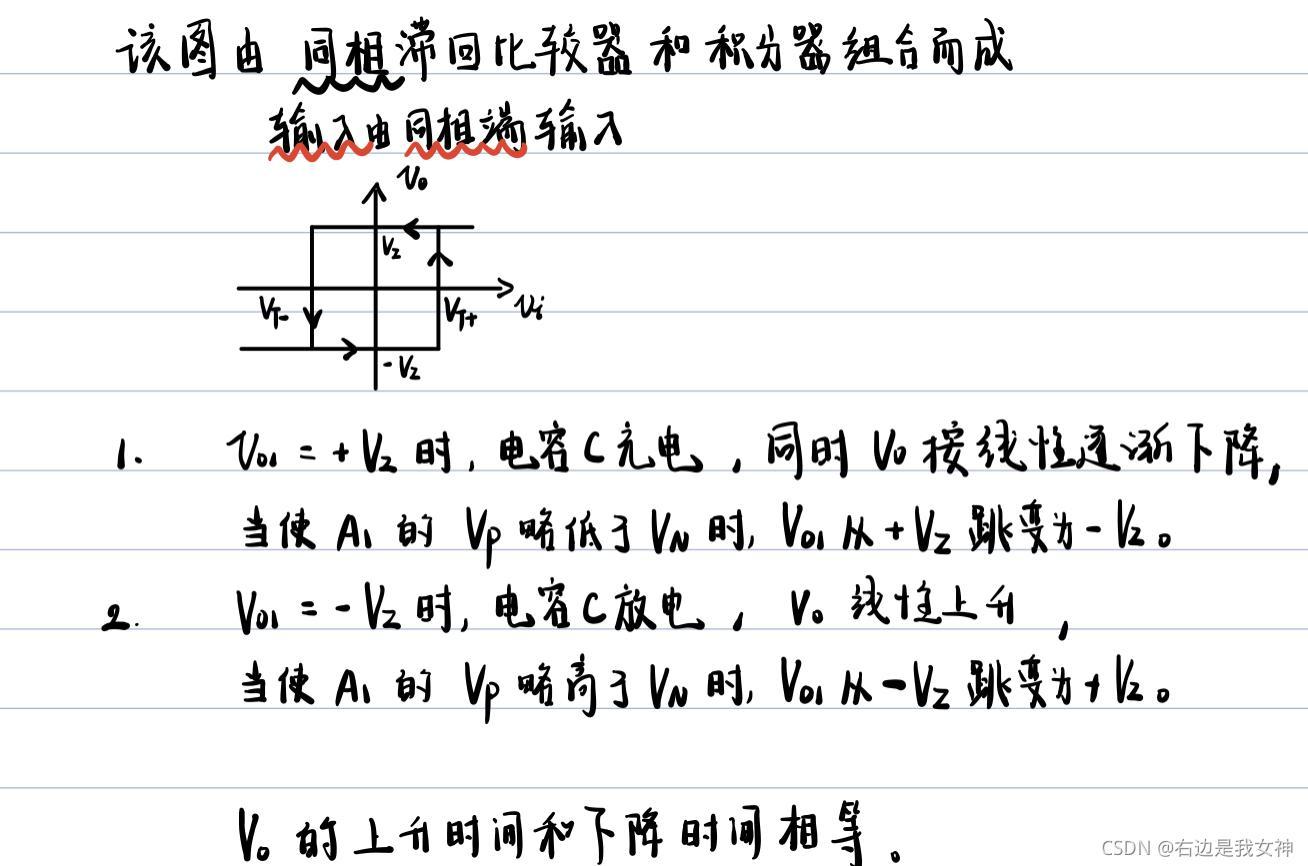 该图由 同相滞回比较器 和 积分器组合而成
输入由同相端输入
Vo
Vz
VT- VT+ Vi
-Vz
1. Vo1 = +Vz 时, 电容C充电, 同时 Vo 按线性逐渐下降,
当使 A1 的 Vp 略低于 VN 时, Vo1 从 +Vz 跳变为 -Vz。
2. Vo1 = -Vz 时, 电容C放电, Vo 线性上升,
当使 A1 的 Vp 略高于 VN 时, Vo1 从 -Vz 跳变为 +Vz。
Vo 的上升时间和下降时间相等。
CSDN @右边是我女神